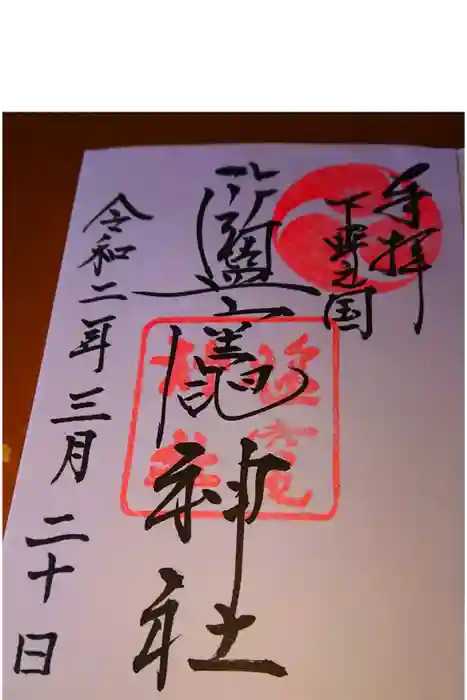 奉拝
下野之国
鹽竈神社
令和二年三月二十日